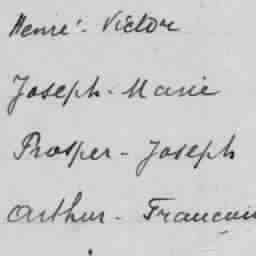 Henri - Victor
Joseph - Marie
Prosper - Joseph
Arthur - François